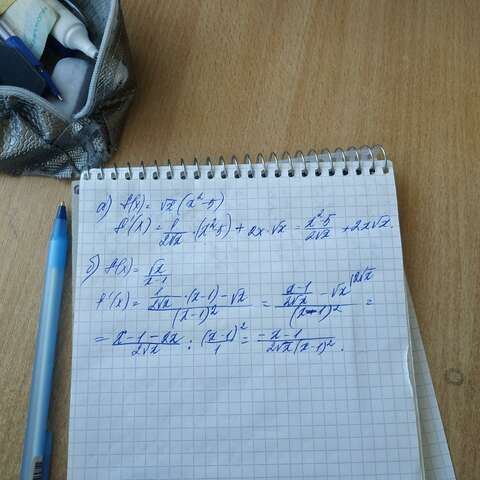 а) f(x) = √x (x²-5)
f'(x) = 1/2√x · (x²-5) + 2x · √x = x²-5/2√x + 2x√x.
б) f(x) = √x/x-1
f'(x) = 1/2√x · (x-1) - √x/(x-1)² = x-1/2√x - √x |2√x/(x-1)² =
= x-1-2x/2√x : (x-1)²/1 = -x-1/2√x(x-1)².